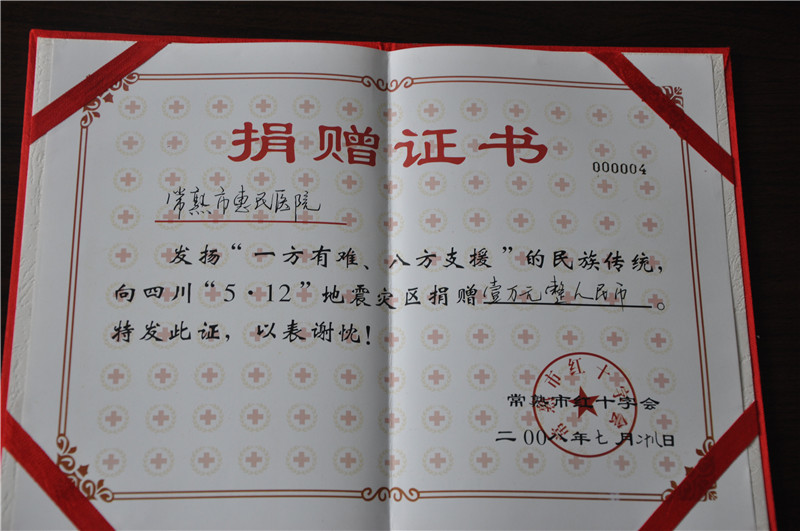 捐赠证书
000004
常熟市惠民医院
发扬“一方有难、八方支援”的民族传统，
向四川“5·12”地震灾区捐赠壹万元整人民币。
特发此证，以表谢忱！
常熟市红十字会
常熟市红十字会
二00八年七月廿八日